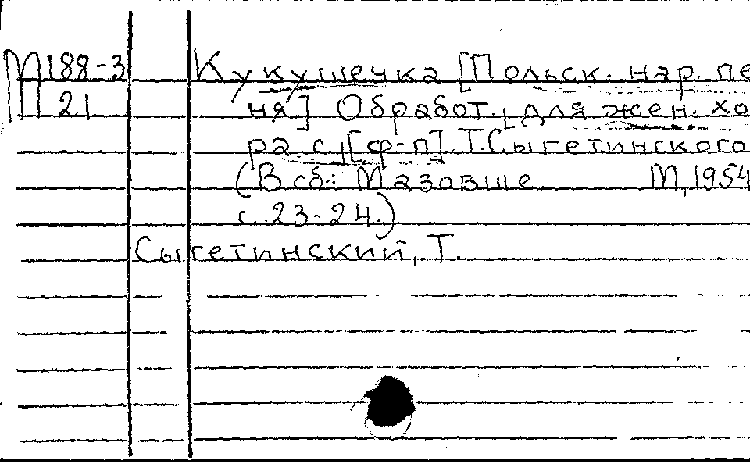 М188-3 Кукушечка [Польск. нар. пе
П 21 ня] Обработ. для жен. хо
ра с [ф-п] Т. Сыгетинского
(В сб.: Мазовше М, 1954
с. 23-24.)
Сыгетинский, Т.